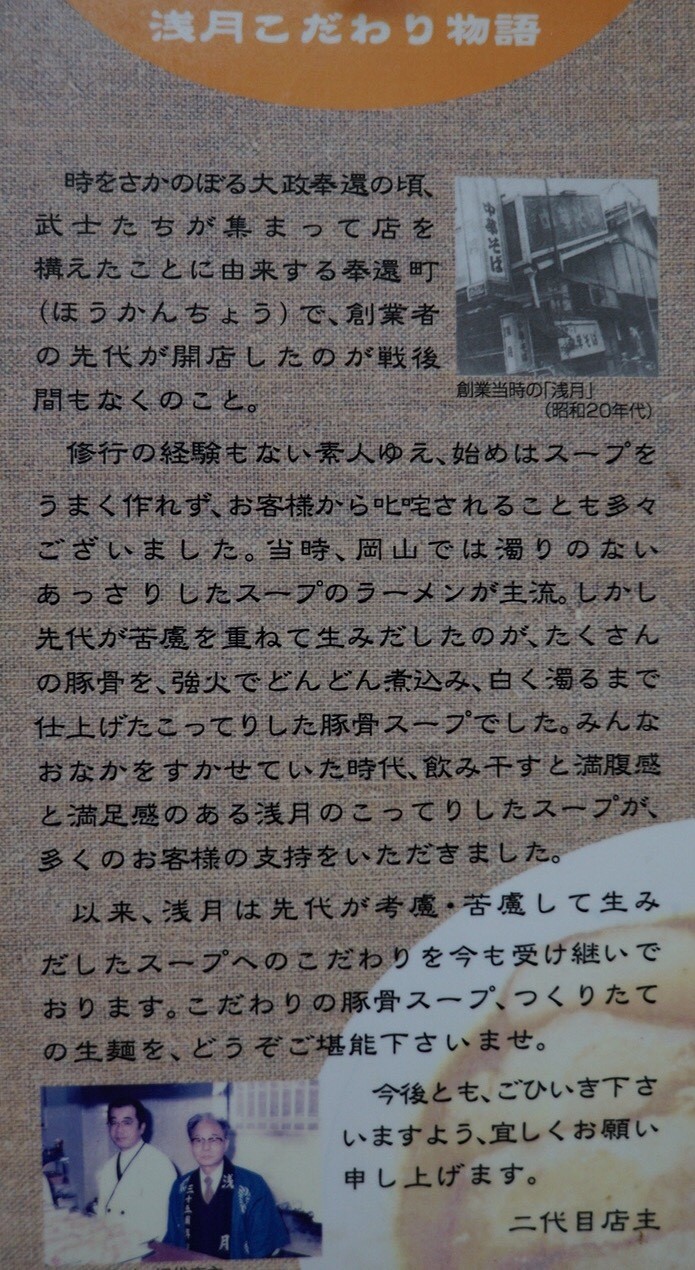 浅月こだわり物語
時をさかのぼる大政奉還の頃、
武士たちが集まって店を
構えたことに由来する奉還町
(ほうかんちょう)で、創業者
の先代が開店したのが戦後
間もなくのこと。
中華そば
創業当時の「浅月」
(昭和20年代)
修行の経験もない素人ゆえ、始めはスープを
うまく作れず、お客様から叱咤されることも多々
ございました。当時、岡山では濁りのない
あっさりしたスープのラーメンが主流。しかし
先代が苦慮を重ねて生みだしたのが、たくさん
の豚骨を、強火でどんどん煮込み、白く濁るまで
仕上げたこってりした豚骨スープでした。みんな
おなかをすかせていた時代、飲み干すと満腹感
と満足感のある浅月のこってりしたスープが、
多くのお客様の支持をいただきました。
以来、浅月は先代が考慮・苦慮して生み
だしたスープへのこだわりを今も受け継いで
おります。こだわりの豚骨スープ、つくりたて
の生麺を、どうぞご堪能下さいませ。
今後とも、ごひいき下さ
いますよう、宜しくお願い
申し上げます。
二代目店主
浅月